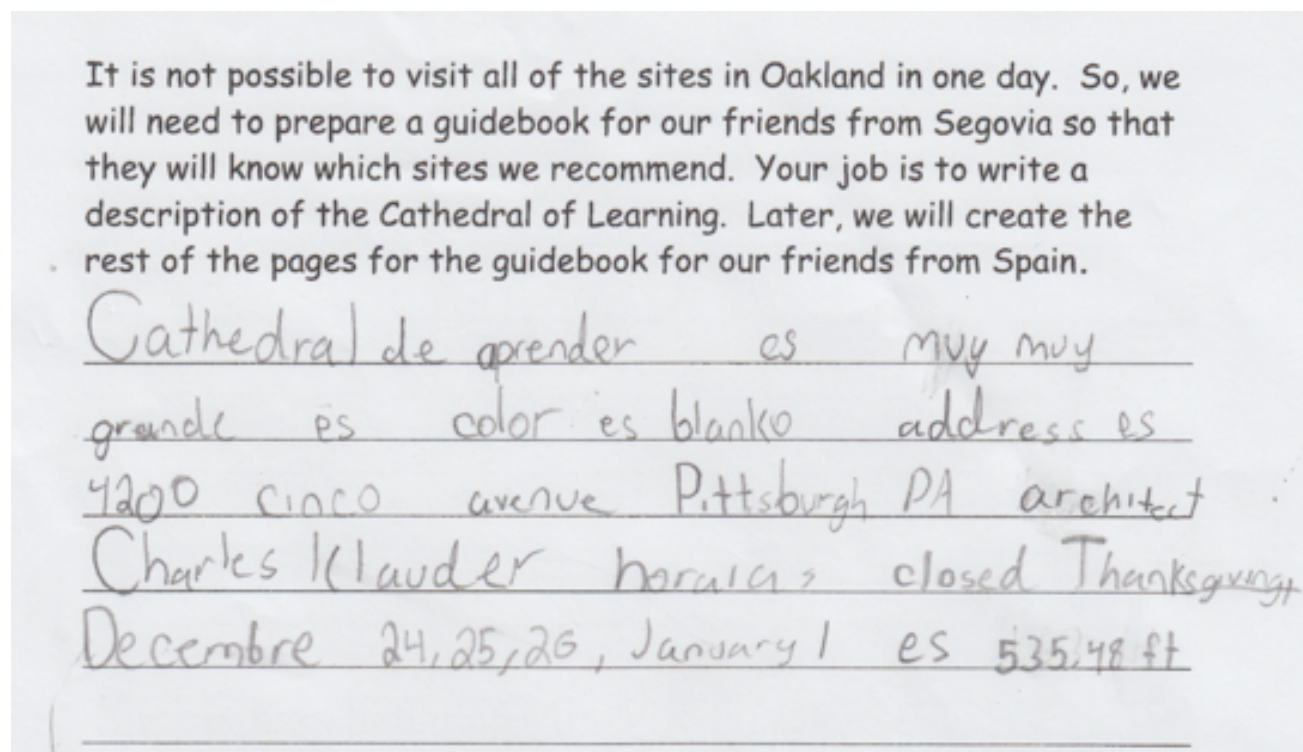 It is not possible to visit all of the sites in Oakland in one day. So, we
will need to prepare a guidebook for our friends from Segovia so that
they will know which sites we recommend. Your job is to write a
description of the Cathedral of Learning. Later, we will create the
rest of the pages for the guidebook for our friends from Spain.
Cathedral de aprender es muy muy
grande es color es blanko address es
4200 cinco avenue Pittsburgh PA architect
Charles Klauder closed Thanksgiving,
Decembre 24, 25, 26, January 1 es 535,48 ft